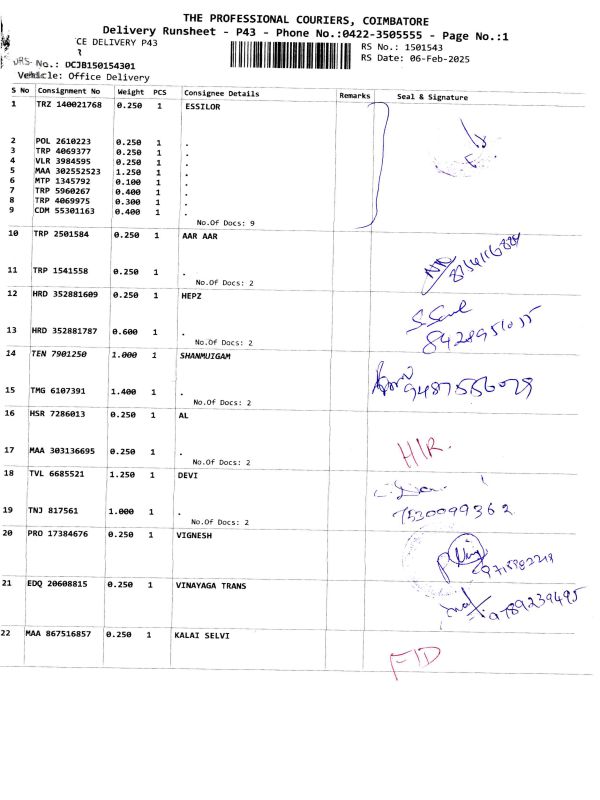 THE PROFESSIONAL COURIERS, COIMBATORE
Delivery Runsheet - P43 - Phone No.:0422-3505555 - Page No.:1
CE DELIVERY P43
RS No.: 1501543
DRS No.: DCJB150154301
RS Date: 06-Feb-2025
Vehicle: Office Delivery
S No Consignment No Weight PCS Consignee Details Remarks Seal & Signature
1 TRZ 140021768 0.250 1 ESSILOR
2 POL 2610223 0.250 1 .
3 TRP 4069377 0.250 1 .
4 VLR 3984595 0.250 1 .
5 MAA 302552523 1.250 1 .
6 MTP 1345792 0.100 1 .
7 TRP 5960267 0.400 1 .
8 TRP 4069975 0.300 1 .
9 CDM 55301163 0.400 1 .
No.Of Docs: 9
10 TRP 2501584 0.250 1 AAR AAR
11 TRP 1541558 0.250 1 .
No.Of Docs: 2
12 HRD 352881609 0.250 1 HEPZ
13 HRD 352881787 0.600 1 .
8428951035
No.Of Docs: 2
14 TEN 7901250 1.000 1 SHANMUIGAM
9487556029
15 TMG 6107391 1.400 1 .
No.Of Docs: 2
16 HSR 7286013 0.250 1 AL
H/R.
17 MAA 303136695 0.250 1 .
No.Of Docs: 2
18 TVL 6685521 1.250 1 DEVI
19 TNJ 817561 1.000 1 .
7530099362
No.Of Docs: 2
20 PRO 17384676 0.250 1 VIGNESH
21 EDQ 20608815 0.250 1 VINAYAGA TRANS
9789239495
22 MAA 867516857 0.250 1 KALAI SELVI
F/D